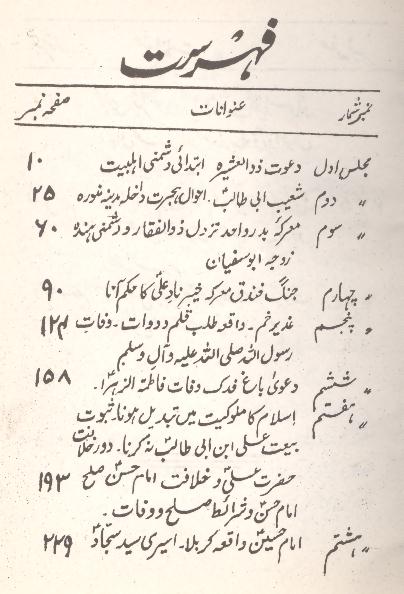 فہرست
نمبر شمار عنوانات صفحہ نمبر
مجلس اول دعوت ذوالعشیرہ ابتدائی دشمنی اہلبیت ۱۰
〃 دوم شعیب ابی طالبؑ۔ احوال ہجرت داخلہ مدینہ منورہ ۲۵
〃 سوم معرکۂ بدر واحد نزدل ذوالفقار و دشمنی ہندہ ۶۰
زوجہ ابوسفیان
〃 چہارم جنگ خندق معرکہ خیبر نادِ علیؑ کا حکم آنا ۹۰
〃 پنجم غدیر خم۔ واقعہ طلب قلم و دوات۔ وفات ۱۲۱
رسول اللہ صلی اللہ علیہ وآلہ وسلم
〃 ششم دعویٰ باغ فدک وفات فاطمۃ الزہراؑ۔ ۱۵۸
〃 ہفتم اسلام کا ملوکیت میں تبدیل ہونا۔ ثبوت
بیعت علی ابن ابی طالبؑ نہ کرنا۔ دور خلافت
حضرت علیؑ و خلافت امام حسنؑ صلح ۱۹۳
امام حسنؑ و شرائط صلح و وفات۔
〃 ہشتم امام حسینؑ واقعہ کربلا۔ اسیری سید سجادؑ ۲۲۹